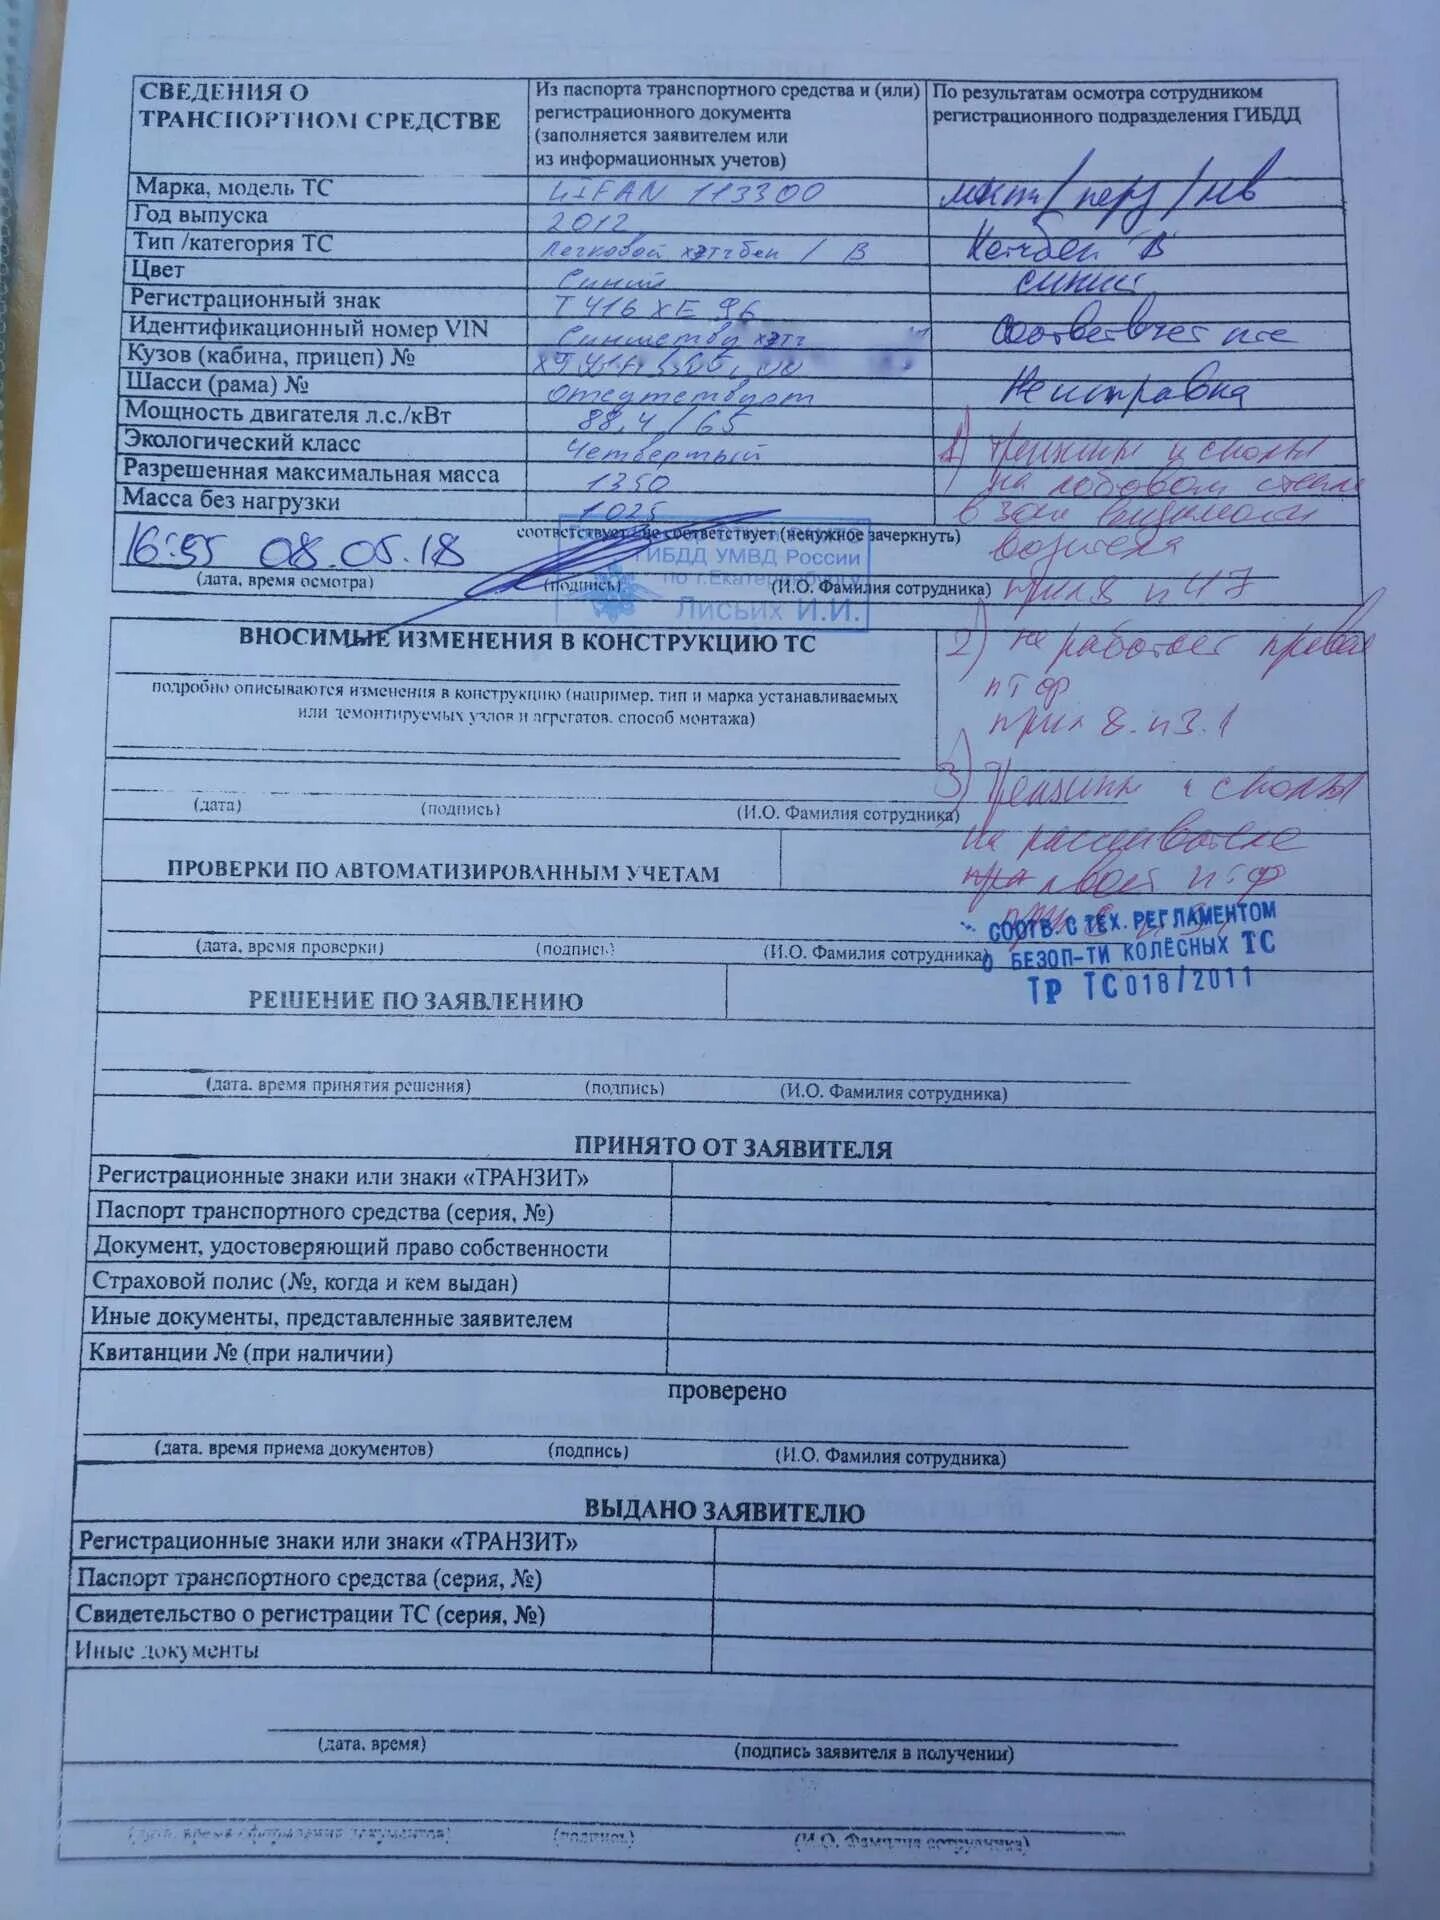 СВЕДЕНИЯ О
ТРАНСПОРТНОМ СРЕДСТВЕ
Из паспорта транспортного средства и (или)
регистрационного документа
(заполняется заявителем или
из информационных учетов)
По результатам осмотра сотрудником
регистрационного подразделения ГИБДД
Марка, модель ТС
LIFAN 113300
Год выпуска
2012
Тип /категория ТС
Легковой хэтчбек / В
Хетчбек "В"
Цвет
Синий
синий
Регистрационный знак
Т 416 ХЕ 96
Идентификационный номер VIN
Кузов (кабина, прицеп) №
Шасси (рама) №
отсутствует
Неисправна
Мощность двигателя л.с./кВт
88,4 / 65
Экологический класс
Четвертый
Разрешенная максимальная масса
1350
Масса без нагрузки
1025
1) Трещины и сколы
на лобовом стекле
в зоне видимости
водителя
прил 8 п 4.7
соответствует / не соответствует (ненужное зачеркнуть)
16:55 08.05.18
ГИБДД УМВД России
по г.Екатеринбургу
Лисьих И.И.
(дата, время осмотра)
(подпись)
(И.О. Фамилия сотрудника)
ВНОСИМЫЕ ИЗМЕНЕНИЯ В КОНСТРУКЦИЮ ТС
2) не работает правая
птф
прил 8. п3.1
подробно описываются изменения в конструкцию (например, тип и марка устанавливаемых
или демонтируемых узлов и агрегатов, способ монтажа)
3) Трещины и сколы
на рассеивателе
левой птф
(дата)
(подпись)
(И.О. Фамилия сотрудника)
ПРОВЕРКИ ПО АВТОМАТИЗИРОВАННЫМ УЧЕТАМ
СООТВ. С ТЕХ. РЕГЛАМЕНТОМ
О БЕЗОП-ТИ КОЛЕСНЫХ ТС
ТР ТС 018/2011
(дата, время проверки)
(подпись)
(И.О. Фамилия сотрудника)
РЕШЕНИЕ ПО ЗАЯВЛЕНИЮ
(дата, время принятия решения)
(подпись)
(И.О. Фамилия сотрудника)
ПРИНЯТО ОТ ЗАЯВИТЕЛЯ
Регистрационные знаки или знаки «ТРАНЗИТ»
Паспорт транспортного средства (серия, №)
Документ, удостоверяющий право собственности
Страховой полис (№, когда и кем выдан)
Иные документы, представленные заявителем
Квитанции № (при наличии)
проверено
(дата, время приема документов)
(подпись)
(И.О. Фамилия сотрудника)
ВЫДАНО ЗАЯВИТЕЛЮ
Регистрационные знаки или знаки «ТРАНЗИТ»
Паспорт транспортного средства (серия, №)
Свидетельство о регистрации ТС (серия, №)
Иные документы
(дата, время)
(подпись заявителя в получении)
(дата, время оформления документов)
(подпись)
(И.О. Фамилия сотрудника)